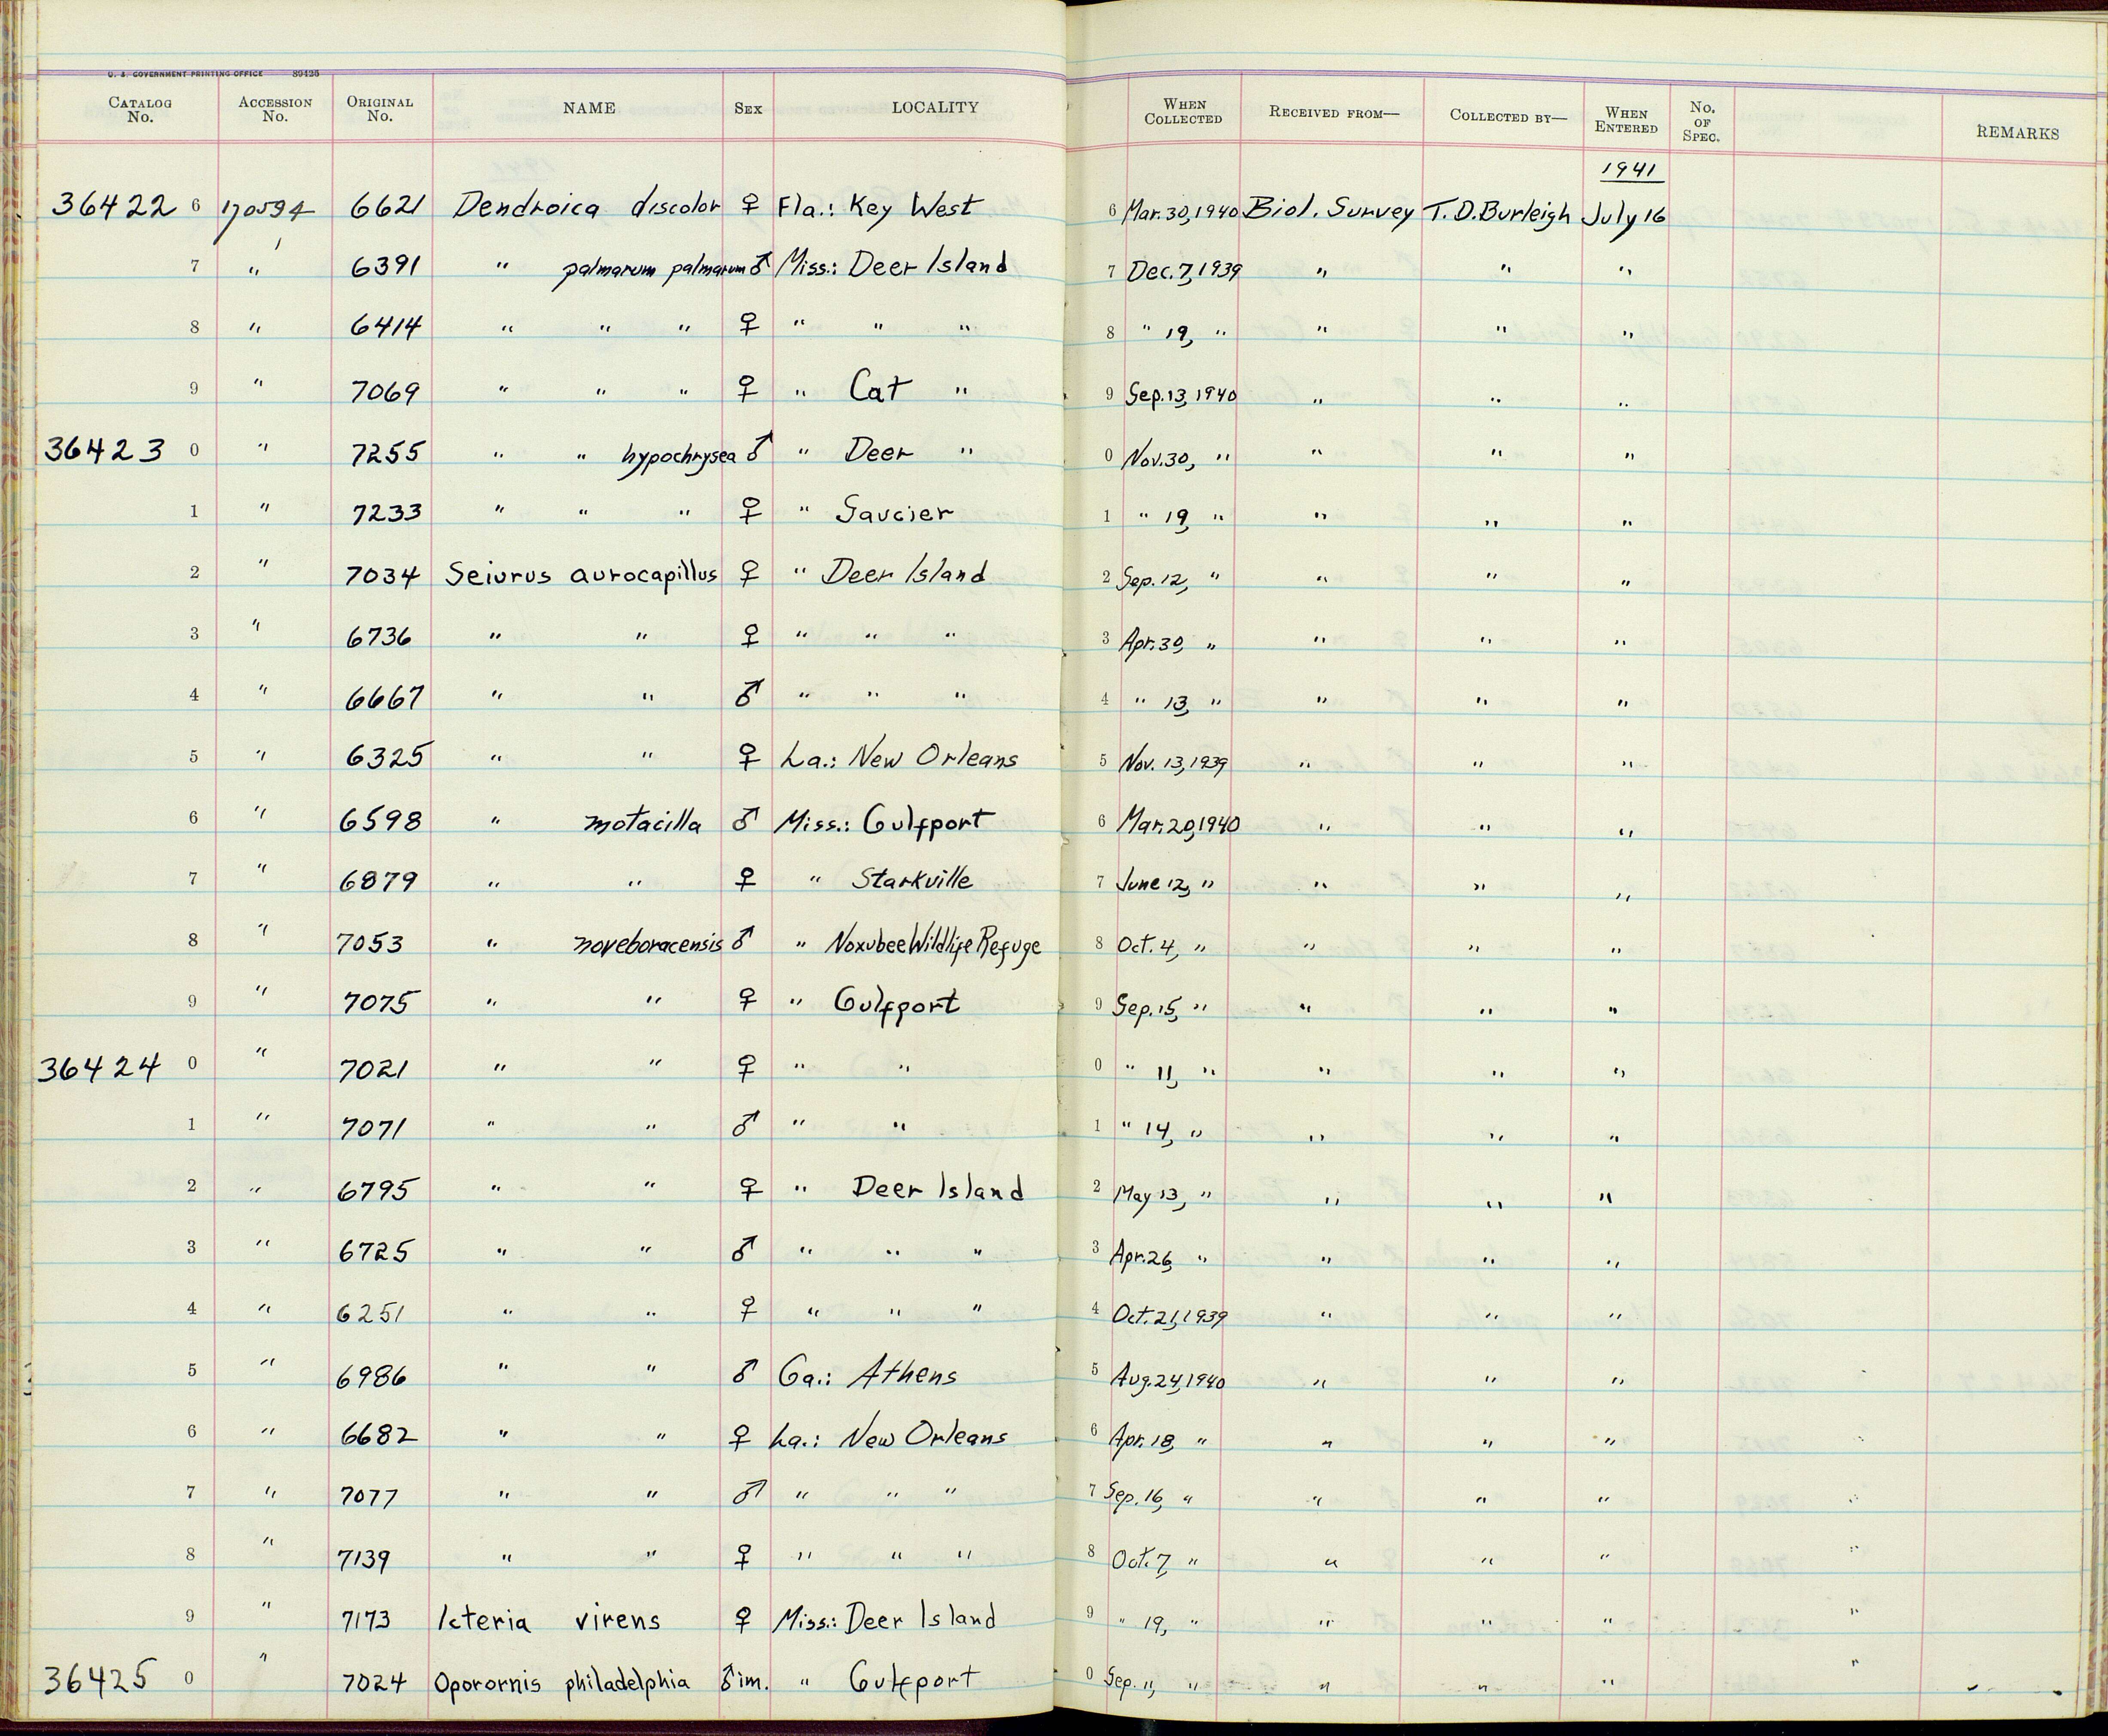 U. S. GOVERNMENT PRINTING OFFICE 89425
CATALOG No. ACCESSION No. ORIGINAL No. NAME SEX LOCALITY WHEN COLLECTED RECEIVED FROM— COLLECTED BY— WHEN ENTERED No. OF SPEC. REMARKS
1941
36422 6 170594 6621 Dendroica discolor ♀ Fla.: Key West 6 Mar. 30, 1940 Biol. Survey T. D. Burleigh July 16
7 " 6391 " palmarum palmarum ♂ Miss.: Deer Island 7 Dec. 7, 1939 " " "
8 " 6414 " " " ♀ " " " 8 " 19, " " " "
9 " 7069 " " " ♀ " Cat " 9 Sep. 13, 1940 " " "
36423 0 " 7255 " " hypochrysea ♂ " Deer " 0 Nov. 30, " " " "
1 " 7233 " " " ♀ " Saucier 1 " 19, " " " "
2 " 7034 Seiurus aurocapillus ♀ " Deer Island 2 Sep. 12, " " " "
3 " 6736 " " ♀ " " " 3 Apr. 30, " " " "
4 " 6667 " " ♂ " " " 4 " 13, " " " "
5 " 6325 " " ♀ La.: New Orleans 5 Nov. 13, 1939 " " "
6 " 6598 " motacilla ♂ Miss.: Gulfport 6 Mar. 20, 1940 " " "
7 " 6879 " " ♀ " Starkville 7 June 12, " " " "
8 " 7053 " noveboracensis ♂ " Noxubee Wildlife Refuge 8 Oct. 4, " " " "
9 " 7075 " " ♀ " Gulfport 9 Sep. 15, " " " "
36424 0 " 7021 " " ♀ " " 0 " 11, " " " "
1 " 7071 " " ♂ " " 1 " 14, " " " "
2 " 6795 " " ♀ " Deer Island 2 May 13, " " " "
3 " 6725 " " ♂ " " " 3 Apr. 26, " " " "
4 " 6251 " " ♀ " " " 4 Oct. 21, 1939 " " "
5 " 6986 " " ♂ Ga.: Athens 5 Aug. 24, 1940 " " "
6 " 6682 " " ♀ La.: New Orleans 6 Apr. 18, " " " "
7 " 7077 " " ♂ " " " 7 Sep. 16, " " " "
8 " 7139 " " ♀ " " " 8 Oct. 7, " " " "
9 " 7173 Icteria virens ♀ Miss.: Deer Island 9 " 19, " " " "
36425 0 " 7024 Oporornis philadelphia ♂ im. " Gulfport 0 Sep. 11, " " " "